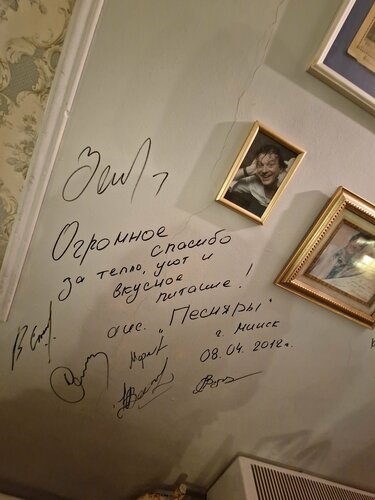 Огромное спасибо
за тепло, уют и
вкусное
питание!
анс. "Песняры"
г. Минск
08.04.2012г.